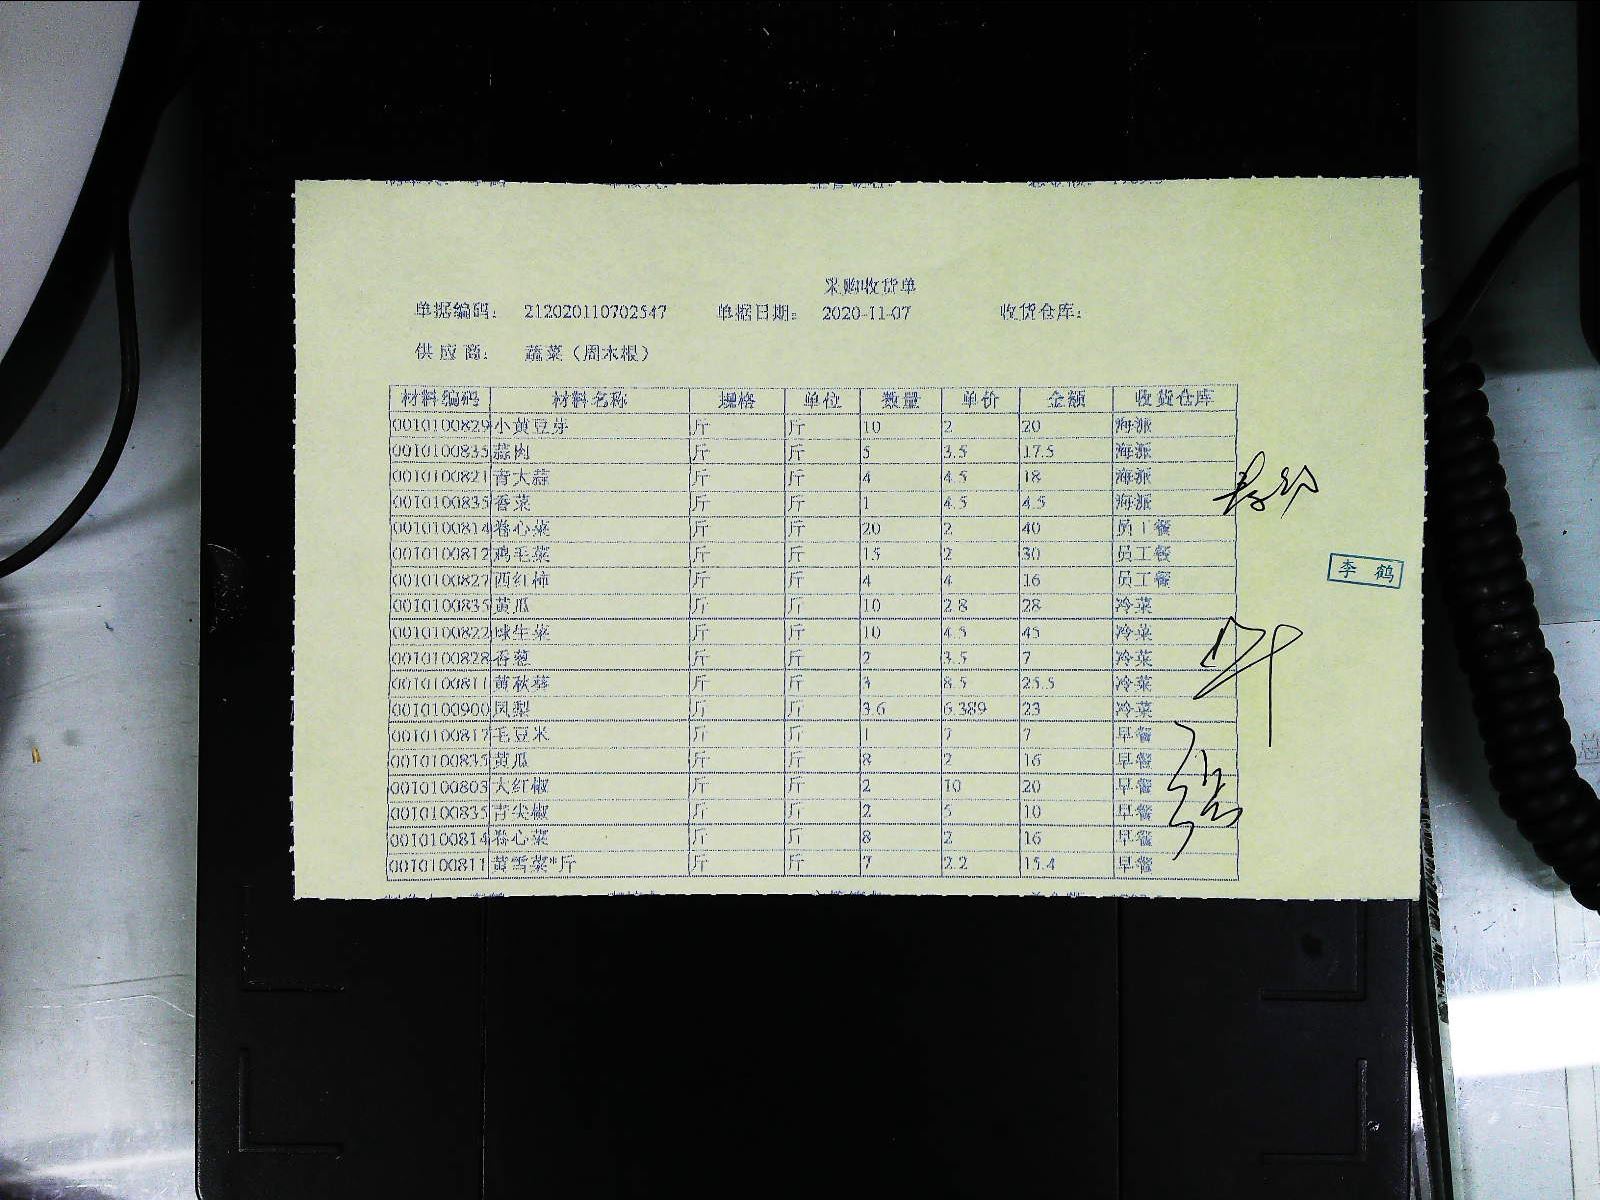 采购收货单
单据编码： 212020110702547 单据日期： 2020-11-07 收货仓库：
供应商： 蔬菜（周木根）
材料编码 材料名称 规格 单位 数量 单价 金额 收货仓库
0010100829 小黄豆芽 斤 斤 10 2 20 海派
0010100835 蒜肉 斤 斤 5 3.5 17.5 海派
0010100821 青大蒜 斤 斤 4 4.5 18 海派
0010100835 香菜 斤 斤 1 4.5 4.5 海派
0010100814 卷心菜 斤 斤 20 2 40 员工餐
0010100812 鸡毛菜 斤 斤 15 2 30 员工餐
0010100827 西红柿 斤 斤 4 4 16 员工餐
0010100835 黄瓜 斤 斤 10 2.8 28 冷菜
李鹤
0010100822 球生菜 斤 斤 10 4.5 45 冷菜
0010100828 香葱 斤 斤 2 3.5 7 冷菜
0010100811 黄秋葵 斤 斤 3 8.5 25.5 冷菜
0010100900 凤梨 斤 斤 3.6 6.389 23 冷菜
0010100817 毛豆米 斤 斤 1 7 7 早餐
0010100835 黄瓜 斤 斤 8 2 16 早餐
0010100803 大红椒 斤 斤 2 10 20 早餐
0010100835 青尖椒 斤 斤 2 5 10 早餐
0010100814 卷心菜 斤 斤 8 2 16 早餐
0010100811 黄雪菜*斤 斤 斤 7 2.2 15.4 早餐